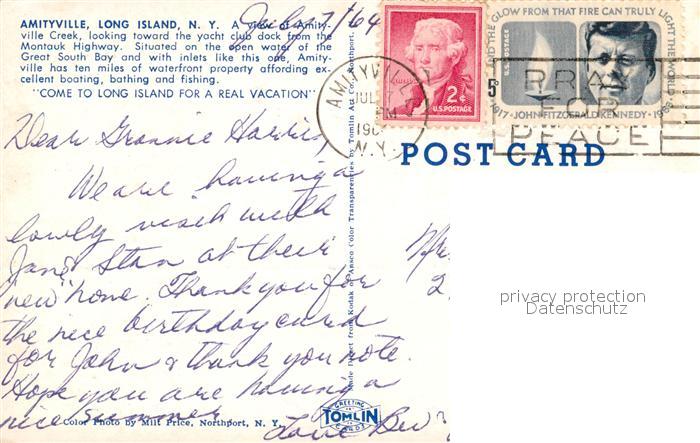 AMITYVILLE, LONG ISLAND, N. Y. A view of Amity-
ville Creek, looking toward the yacht club dock from the
Montauk Highway. Situated on the open water of the
Great South Bay and with inlets like this one, Amity-
ville has ten miles of waterfront property affording ex-
cellent boating, bathing and fishing.
"COME TO LONG ISLAND FOR A REAL VACATION"
July 7/64
Dear Grannie Harris,
We are having a
lovely visit with
Jane & Stan at their
"new" home. Thank you for
the nice birthday card
for John & thank you note.
Hope you are having a
nice summer
Love Bev
Color Photo by Milt Price, Northport, N. Y.
GREETING
TOMLIN
CARDS
Made Direct from Kodak or Ansco Color Transparencies by Tomlin Art Co., Northport,
AMITYVILLE
JUL
PM
196
N.Y.
2¢
U.S. POSTAGE
5
U.S. POSTAGE
AND THE GLOW FROM THAT FIRE CAN TRULY LIGHT THE WORLD
1917 · JOHN FITZGERALD KENNEDY · 196
PRAY
FOR
PEACE
POST CARD
2
privacy protection
Datenschutz